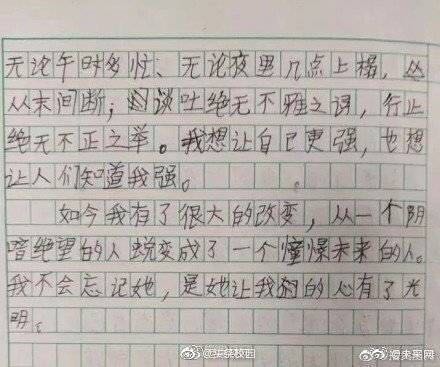 无论午时多忙、无论夜里几点上榻，从
从未间断；谈吐绝无不雅之词，行止
绝无不正之举。我想让自己更强，也想
让人们知道我强。
如今我有了很大的改变，从一个阴
暗绝望的人蜕变成了一个憧憬未来的人。
我不会忘记她，是她让我的心有了光
明。